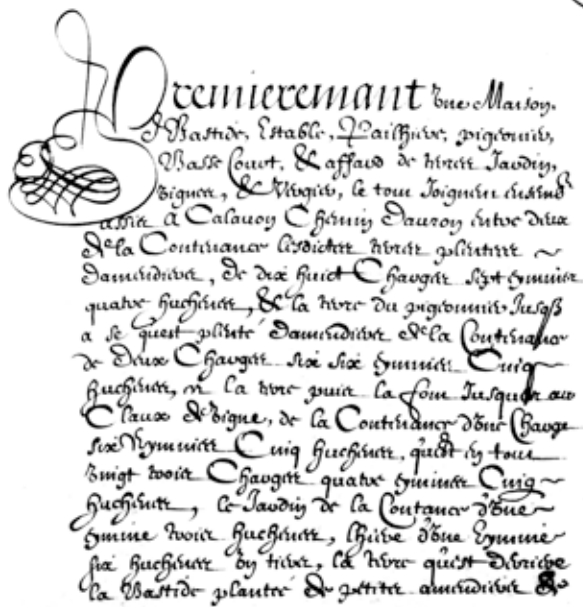 Premieremant vne Maison,
Bastide, Estable, Pailhiere, pigeonier,
Basse Court, & affard de terres Jardin,
Vignes, & Vergier, le tout Joignen ensemb
assise a Calauon Chemin Dauron entre deux
de la Contenance lesdictes terres plantees
damendiers, de dix huict Charges sept eyminees
quatre huchenes, & la terre du pigeonnier Jusqs
a se quest planté damendiers de la Contenance
de deux Charges six six eyminees Cinq
huchenes, la terre puis la fon Jusques au
Claux de vigne, de la Contenance dune Charge
six eyminees Cinq huchenes, quest en tout
vingt trois Charges quatre eyminees Cinq
huchenes, le Jardin de la Contance dune
eymine trois huchenes, lhiere dune Eymine
six huchenes un tiers, la terre quest derriere
la Bastide plantee de petites amendiers &